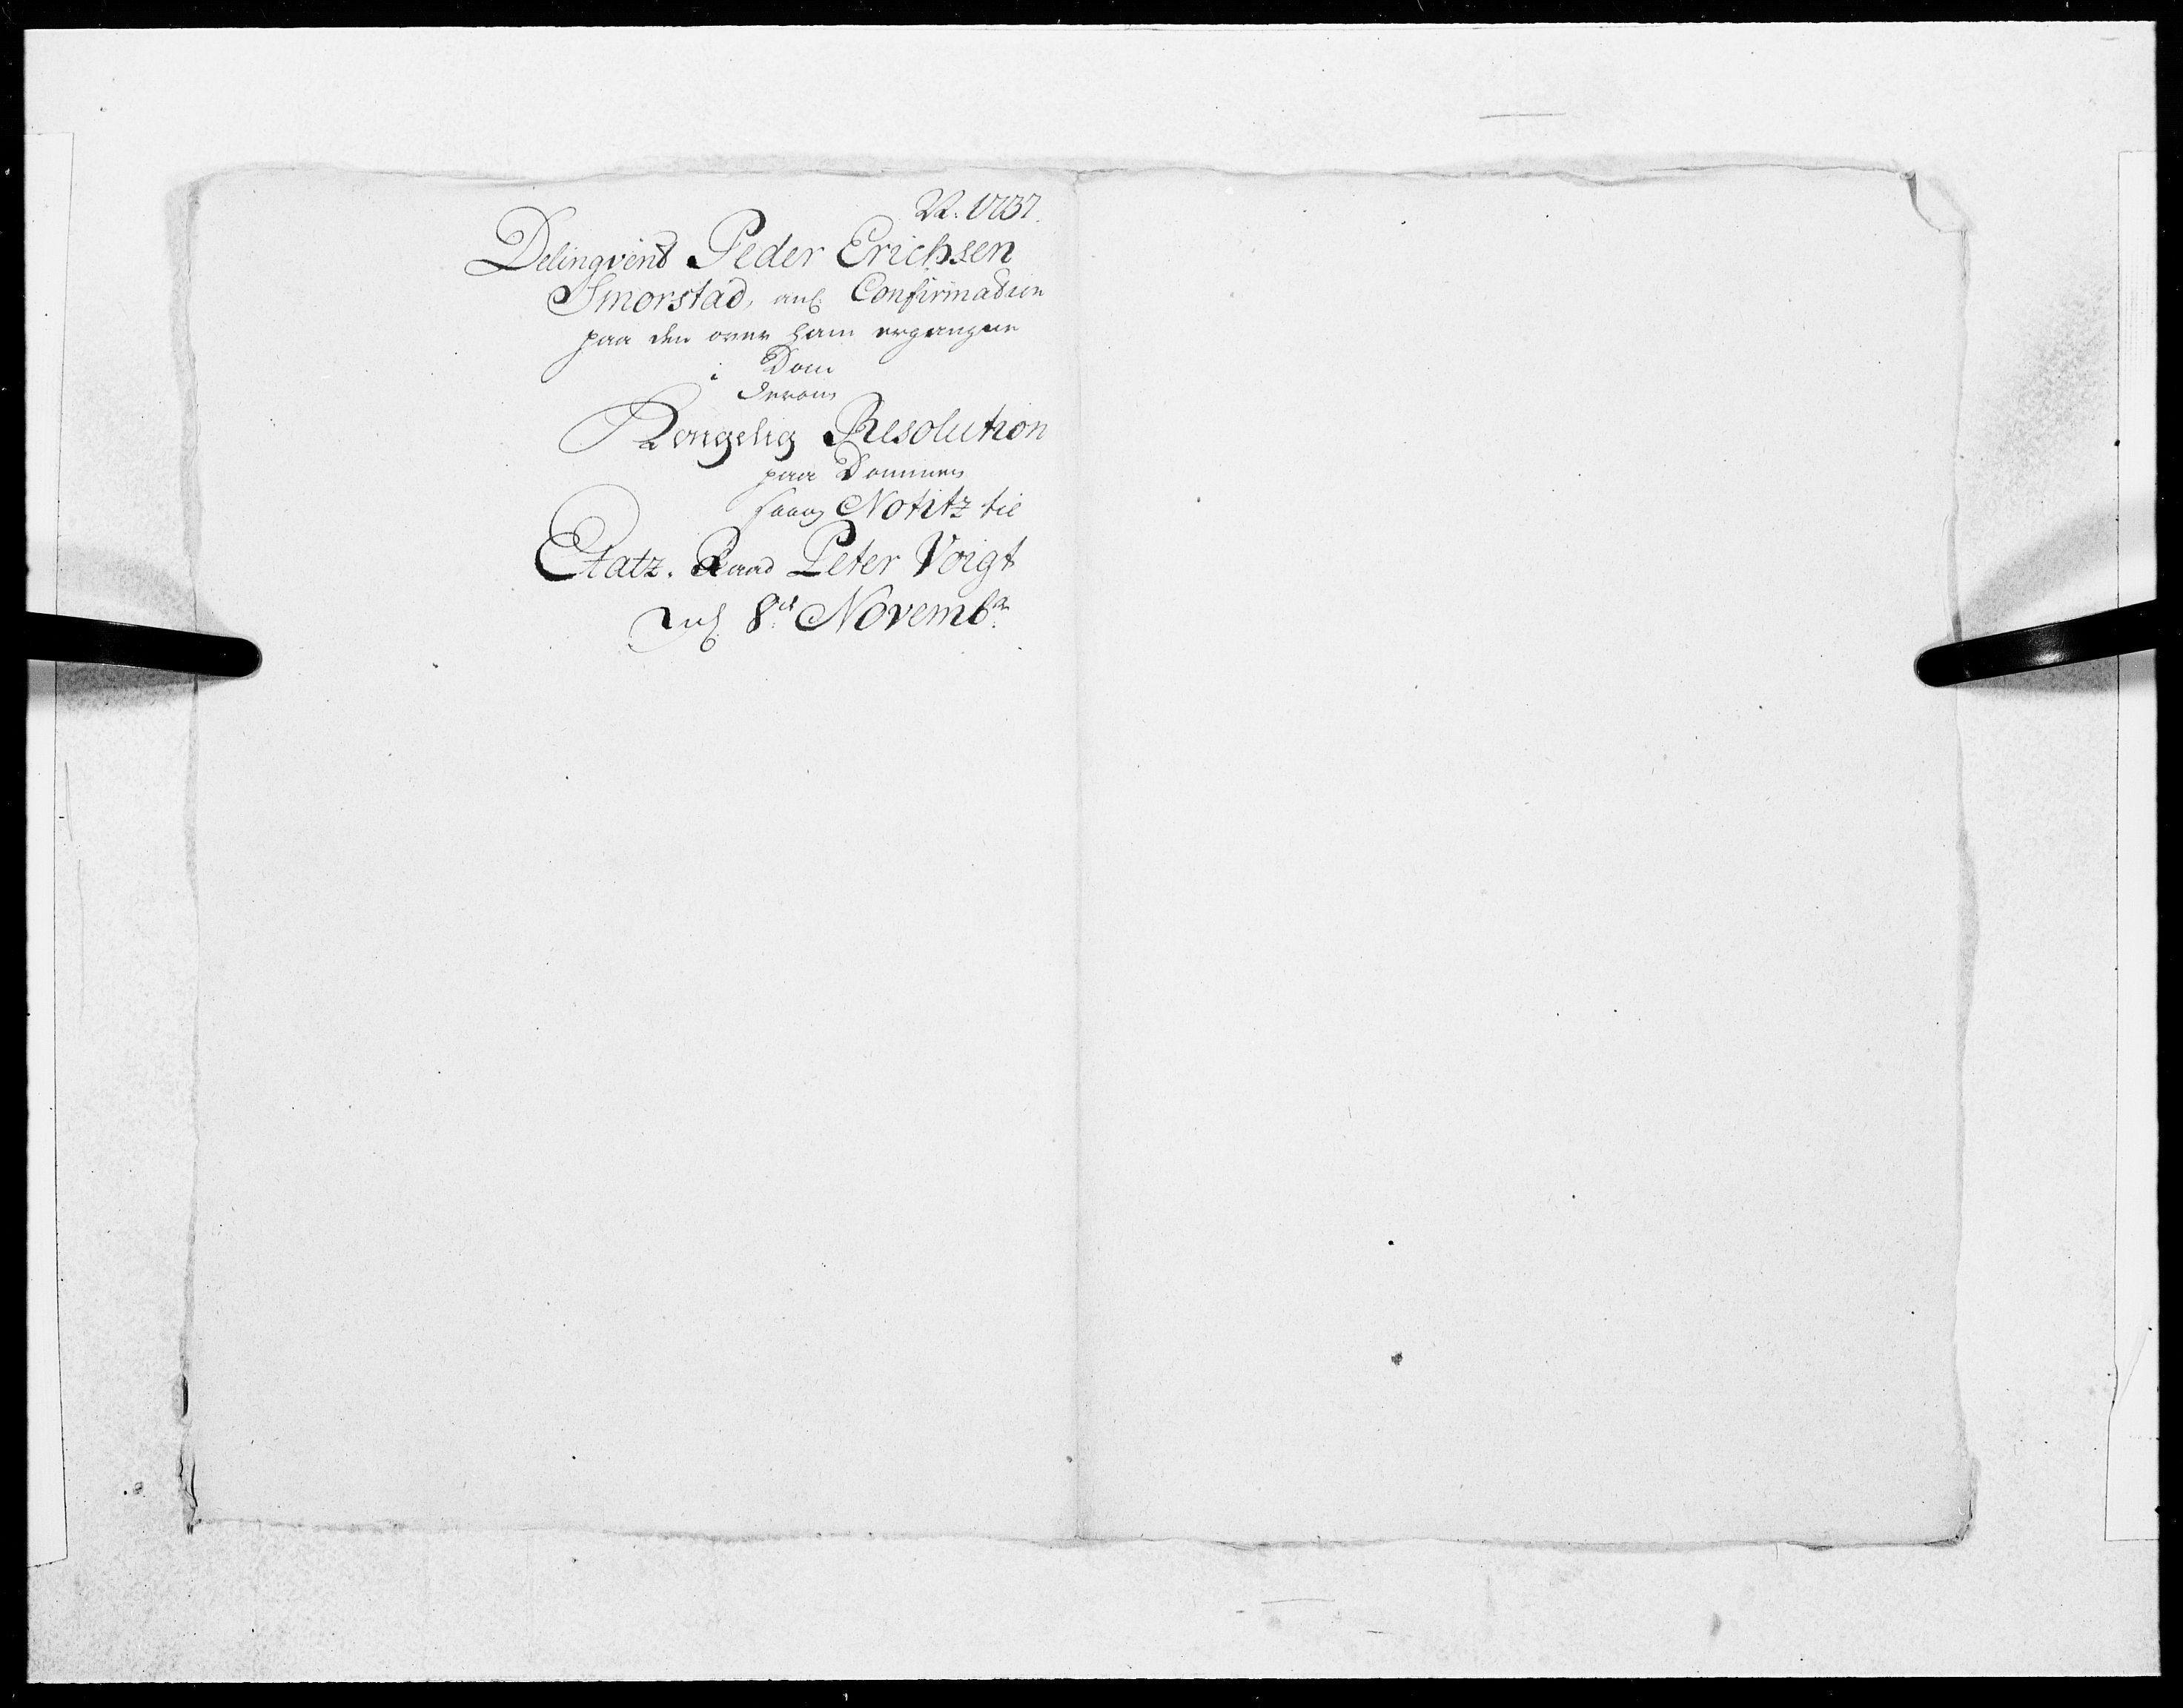 1737.
Delinqvent Peder Erichsen
Smorstad, anl: Confirmation
paa den over ham ergangne
Dom
derom
Kongelig Resolution
paa Dommen
saa og Notitz til
Etatz. Raad Peter Voigt
8de Novembr: